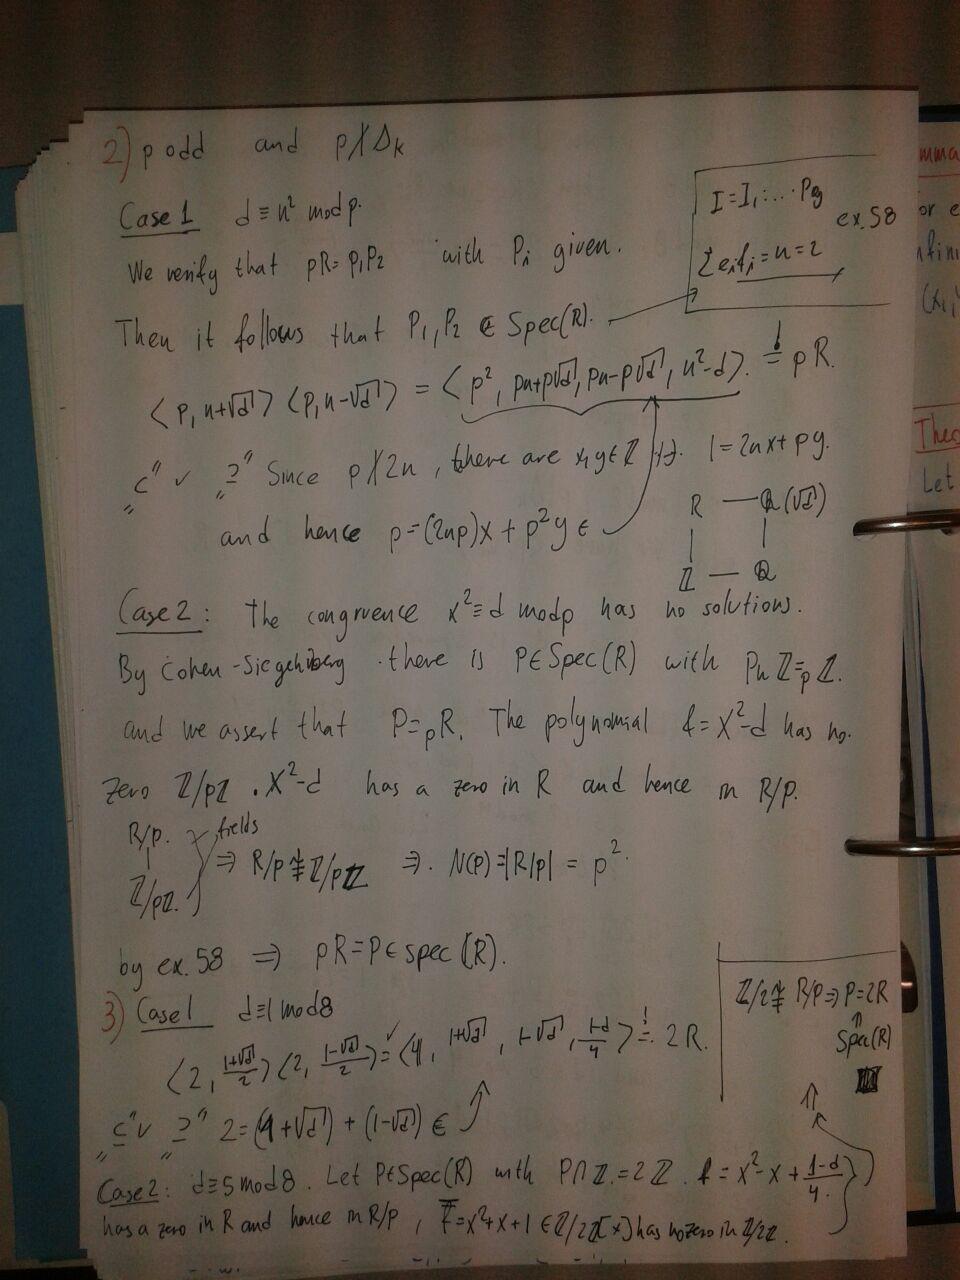 2) p odd and p∤Δ_K
Case 1 d ≡ n² mod p.
We verify that pR = P₁P₂ with Pᵢ given.
I = I₁ · … P_g ex. 58
Σ eᵢfᵢ = n = 2
Then it follows that P₁, P₂ ∈ Spec(R).
⟨p, n+√d⟩ ⟨p, n-√d⟩ = ⟨p², pn+p√d, pn-p√d, n²-d⟩ =! pR.
„⊆" ✓ „⊇" Since p∤2n, there are x,y ∈ ℤ s.t. 1 = 2nx + py.
and hence p = (2np)x + p²y ∈
R — ℚ(√d)
ℤ — ℚ
Case 2: The congruence x² ≡ d mod p has no solutions.
By Cohen - there is P ∈ Spec(R) with P∩ℤ = pℤ.
and we assert that P = pR. The polynomial f = X²-d has no
zero ℤ/pℤ. X²-d has a zero in R and hence in R/P.
R/P. fields
ℤ/pℤ. ⇒ R/P ≇ ℤ/pℤ ⇒. N(P) = |R/P| = p².
by ex. 58 ⇒ pR = P ∈ Spec(R).
3) Case 1 d ≡ 1 mod 8
⟨2, (1+√d)/2⟩ ⟨2, (1-√d)/2⟩ = ⟨4, 1+√d, 1-√d, (1-d)/4⟩ =! 2R.
„⊆" ✓ „⊇" 2 = (1+√d) + (1-√d) ∈
ℤ/2 ≇ R/P ⇒ P = 2R
Spec(R)
Case 2: d ≡ 5 mod 8. Let P ∈ Spec(R) with P∩ℤ = 2ℤ. f = x²-x+(1-d)/4.
has a zero in R and hence in R/P, f̄ = x²+x+1 ∈ ℤ/2ℤ[x] has no zero in ℤ/2ℤ.
mma
or e
nfini
(x₁,
Theo
Let